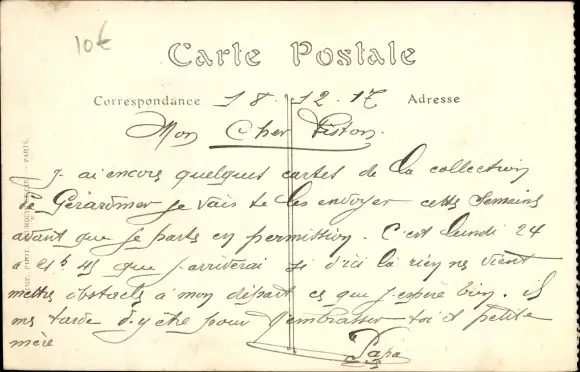 10€
Carte Postale
Correspondance 18.12.17 Adresse
Mon Cher Fiston.
j'ai encore quelques cartes de la collection
de Gérardmer je vais te les envoyer cette semaine
avant que je parte en permission. C'est lundi 24
à 21h 45 que j'arriverai si d'ici là rien ne vient
mettre obstacle à mon départ ce que j'espère bien. il
me tarde d'y être pour t'embrasser toi et petite
mère
Papa
PARIS.